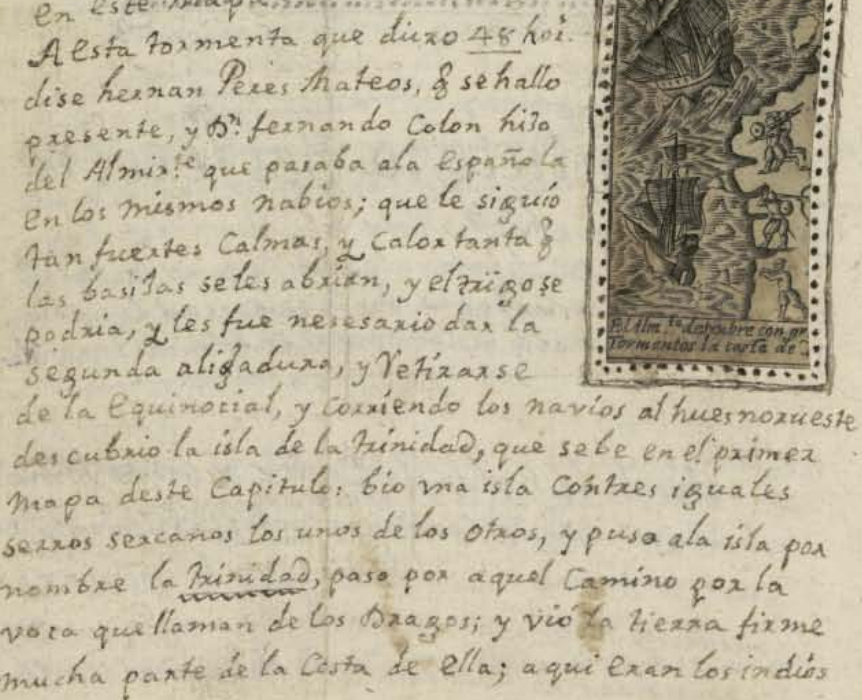 en este
A esta tormenta que duro 48 hoꝛ.
dise hernan Peres Mateos, q̃ se hallo
presente, y Dⁿ. fernando Colon hijo
del Almirᵗᵉ que pasaba ala española
en los mismos nabios; que le siguió
tan fuertes Calmas, y Calor tanta q̃
las basijas se les abrian, y el trigo se
podria, y les fue nesesario dar la
segunda aligadura, y Retirarse
de la Equinocial, y corriendo los navios al huesnorueste
descubrio la isla de la trinidad, que sebe en el primer
mapa deste Capitulo: bio vna isla Contres iguales
serros sercanos los unos de los otros, y puso ala isla por
nombre la trinidad, paso por aquel Camino por la
voca que llaman de los Dragos; y vió la tierra firme
mucha parte de la Costa de ella; aqui eran los indios
El Almᵗᵉ descubre con gr
Tormentos la costa de